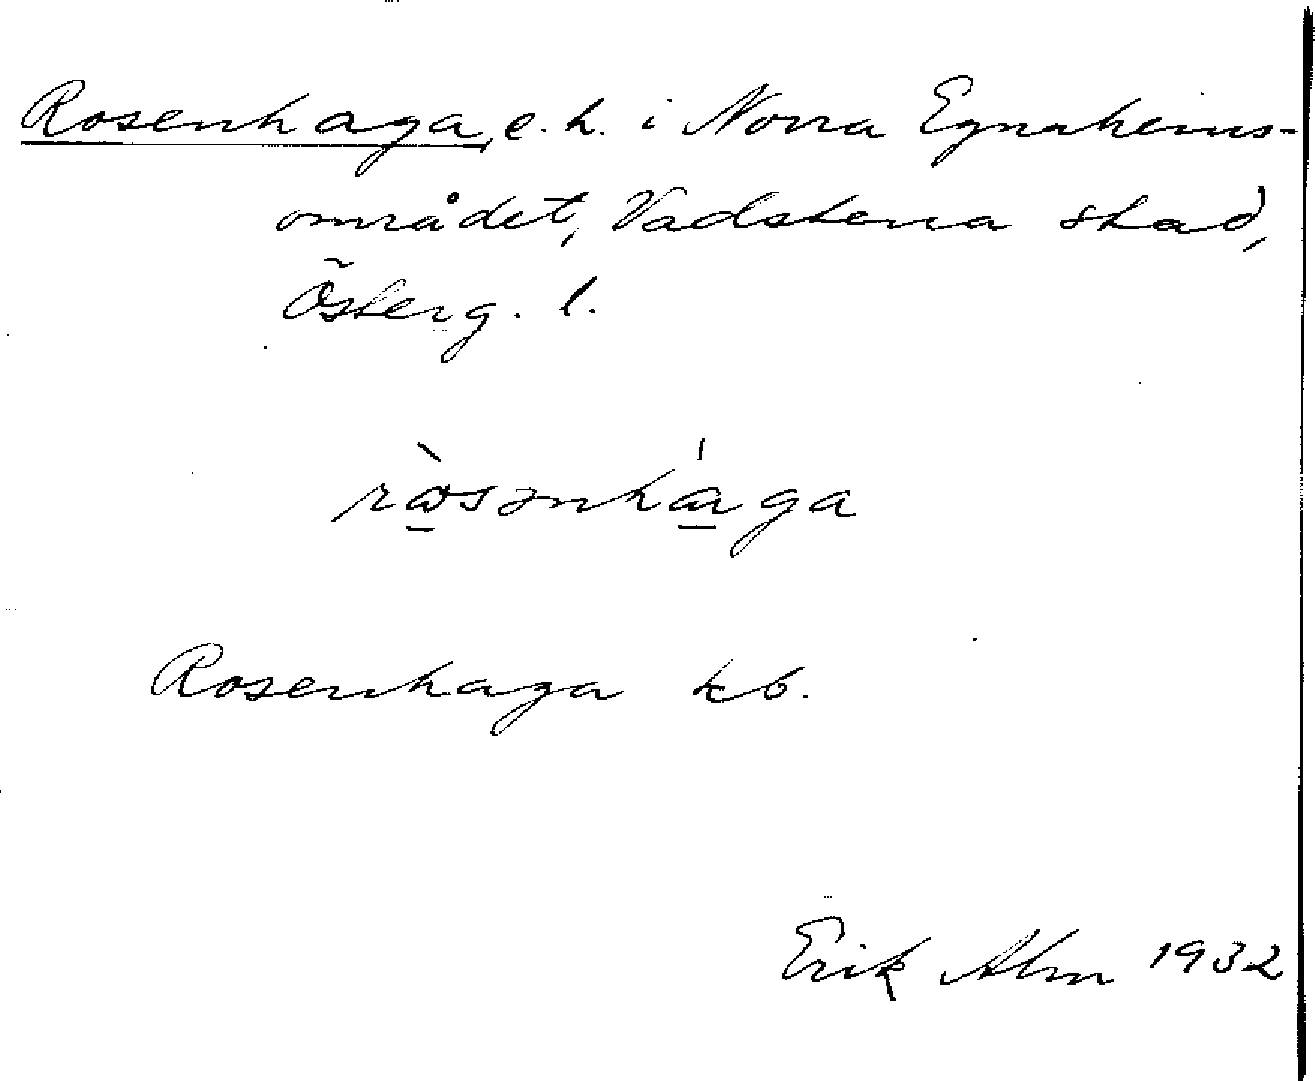 Rosenhaga, e. h. i Norra Egnahems-
området, Vadstena stad,
Österg. l.
Rosenhaga kb.
Erik Alm 1932